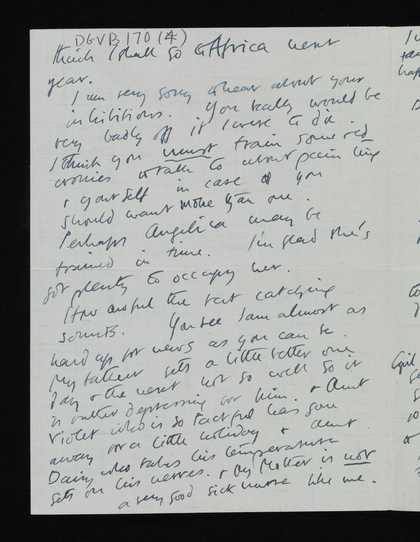 DGVB 170 (4)
think I shall go to Africa next
year.
I am very sorry to hear about your
inhibitions. You really would be
very badly off if I were to die.
I think you must train some old
cronies to talk to about painting
& yourself in case you
should want more than one.
Perhaps Angelica may be
trained in time. I'm glad she's
got plenty to occupy her.
How awful the rat catching
sounds. You see I am almost as
hard up for news as you can be.
My father gets a little better one
day & the next not so well so it
is rather depressing for him. & Aunt
Violet who is so tactful has gone
away for a little holiday & Aunt
Daisy who takes his temperature
gets on his nerves. & My Mother is not
a very good sick nurse like me.